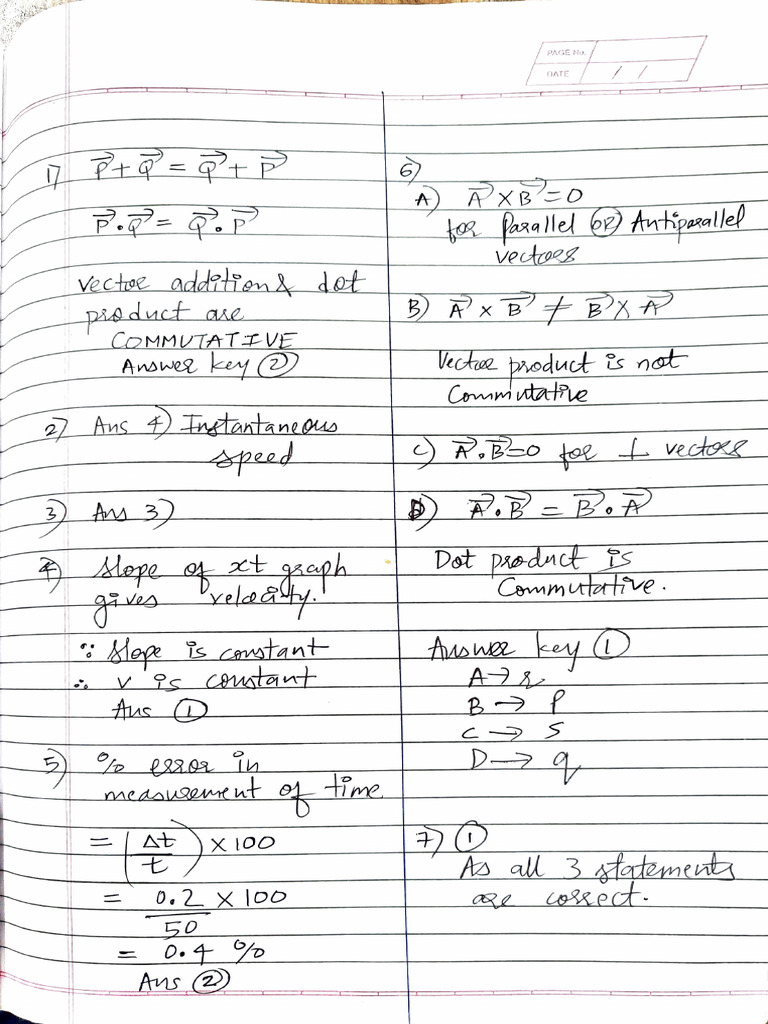 PAGE No.
DATE / /
1) P⃗ + Q⃗ = Q⃗ + P⃗
P⃗ . Q⃗ = Q⃗ . P⃗
Vector addition & dot
product are
COMMUTATIVE
Answer key ②
2) Ans 4) Instantaneous
speed
3) Ans 3)
4) Slope of xt graph
gives velocity.
∵ Slope is constant
∴ v is constant
Ans ①
5) % error in
measurement of time
= (Δt/t) × 100
= 0.2/50 × 100
= 0.4 %
Ans ②
6)
A) A⃗ × B⃗ = 0
for Parallel OR Antiparallel
vectors
B) A⃗ × B⃗ ≠ B⃗ × A⃗
Vector product is not
Commutative
C) A⃗ . B⃗ = 0 for ⊥ vectors
D) A⃗ . B⃗ = B⃗ . A⃗
Dot product is
Commutative.
Answer key ①
A → r
B → P
C → S
D → q
7) ①
As all 3 statements
are correct.